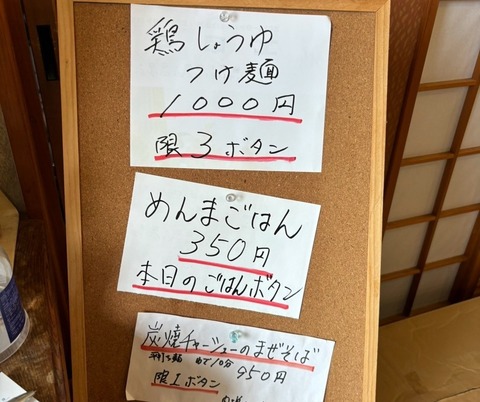 鶏しょうゆ
つけ麺
1000円
限3ボタン
めんまごはん
350円
本日のごはんボタン
炭焼チャーシューのまぜそば
平打ち麺 ゆで10分 950円
限1ボタン